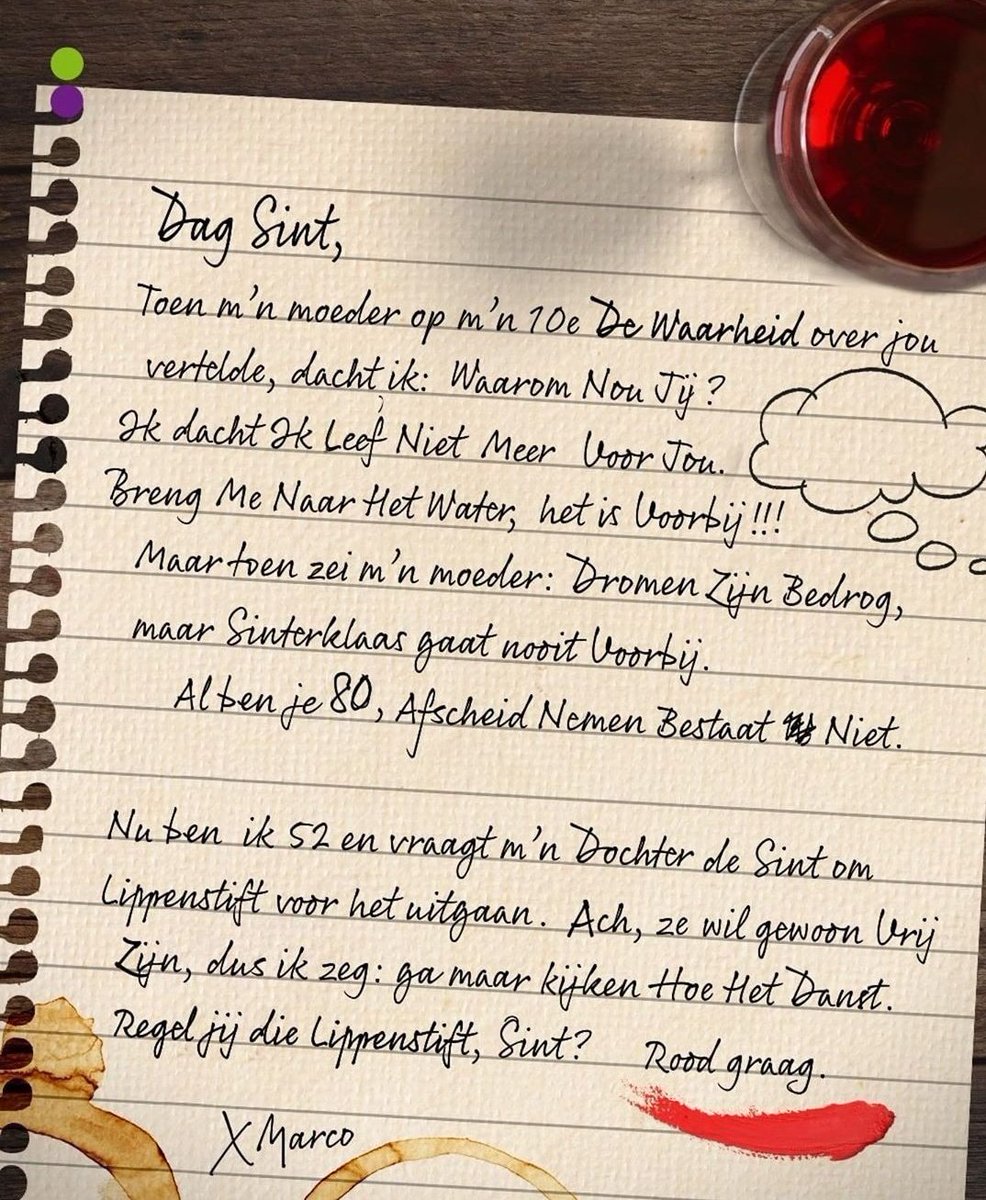 Dag Sint,
Toen m'n moeder op m'n 10e De Waarheid over jou
vertelde, dacht ik: Waarom Nou Jij?
Ik dacht Ik Leef Niet Meer Voor Jou.
Breng Me Naar Het Water, het is Voorbij!!!
Maar toen zei m'n moeder: Dromen Zijn Bedrog,
maar Sinterklaas gaat nooit Voorbij.
Al ben je 80, Afscheid Nemen Bestaat Niet.
Nu ben ik 52 en vraagt m'n Dochter de Sint om
Lippenstift voor het uitgaan. Ach, ze wil gewoon Vrij
Zijn, dus ik zeg: ga maar kijken Hoe Het Danst.
Regel jij die Lippenstift, Sint? Rood graag.
X Marco